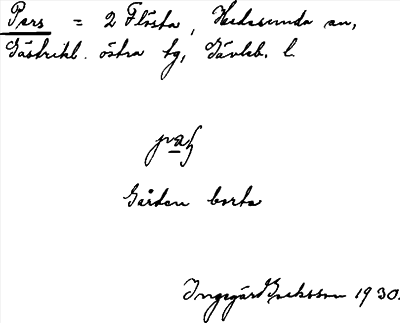 Pers = 2 Flösta, Hedesunda sn,
Gästrikl. östra tg, Gävleb. l.
Gården borta
Ingegärd Eriksson 1930.